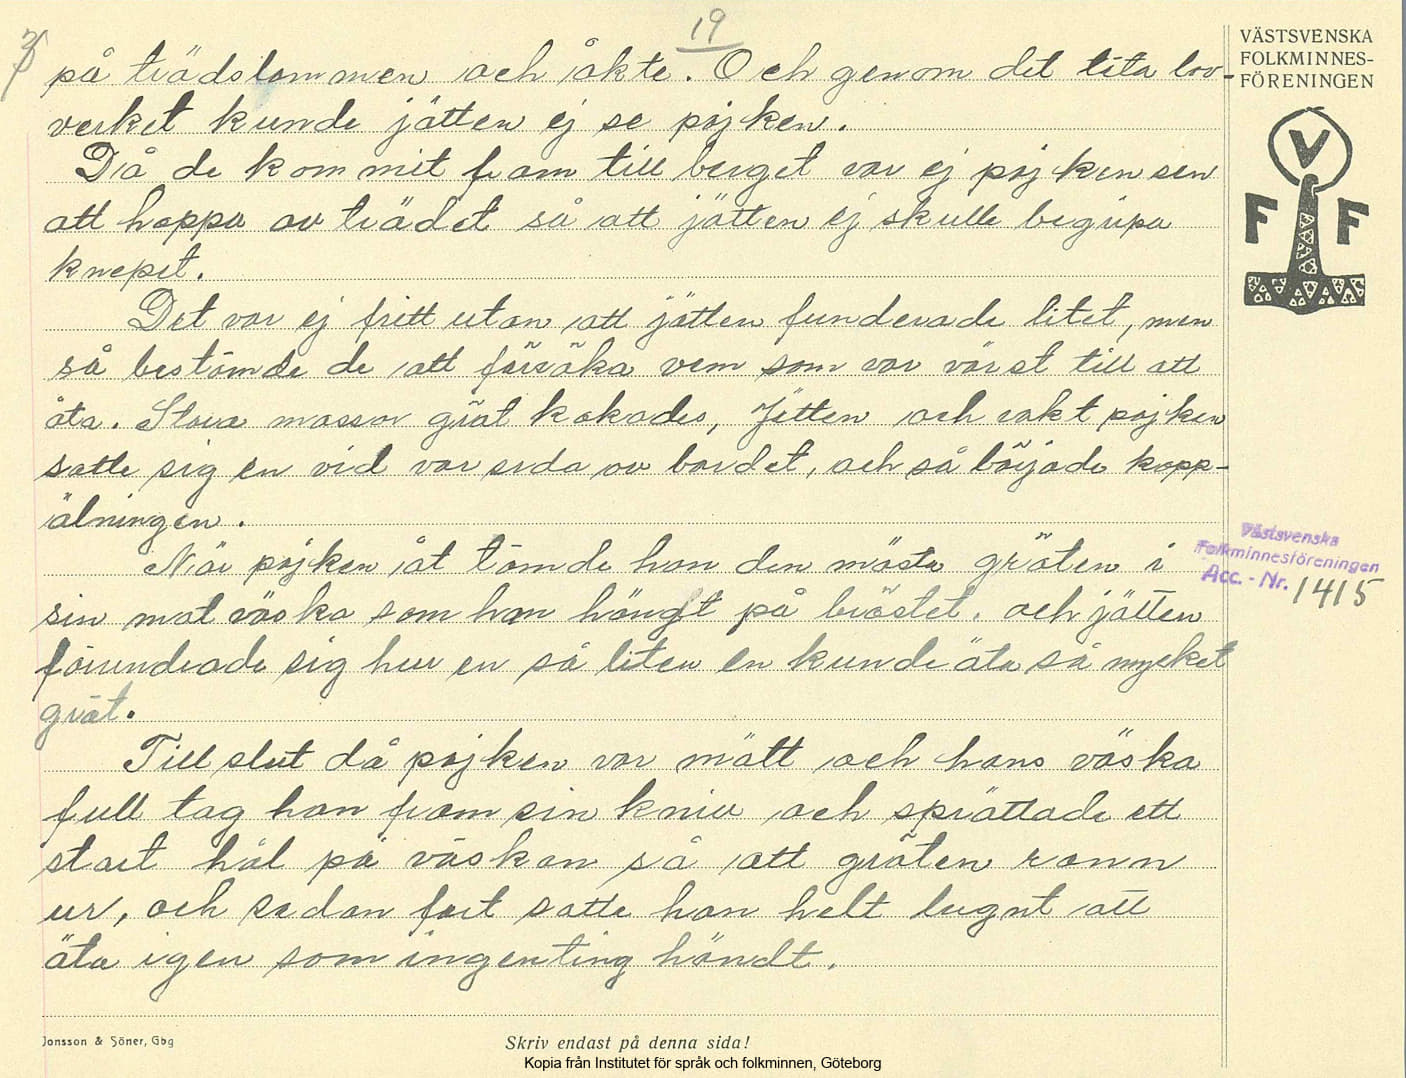 19
7
på trädstammen och åkte. Och genom det täta löv-
verket kunde jätten ej se pojken.
Då de kommit fram till berget var ej pojken sen
att hoppa av trädet så att jätten ej skulle begripa
knepet.
Det var ej fritt utan att jätten funderade litet, men
så bestämde de att försöka vem som var värst till att
äta. Stora massor gröt kokades, Jätten och vakt pojken
satte sig en vid var sida av bordet, och så började kapp-
ätningen.
När pojken åt tömde han den mästa gröten i
sin mat väska som han hängt på bröstet. och jätten
förundrade sig hur en så liten en kunde äta så mycket
gröt.
Till slut då pojken var mätt och hans väska
full tog han fram sin kniv och sprättade ett
stort hål på väskan så att gröten rann
ur, och sedan fort satte han helt lugnt att
äta igen som ingenting händt.
VÄSTSVENSKA
FOLKMINNES-
FÖRENINGEN
V
F F
Västsvenska
Folkminnesföreningen
Acc. - Nr. 1415
Jonsson & Söner, Gbg
Skriv endast på denna sida!
Kopia från Institutet för språk och folkminnen, Göteborg